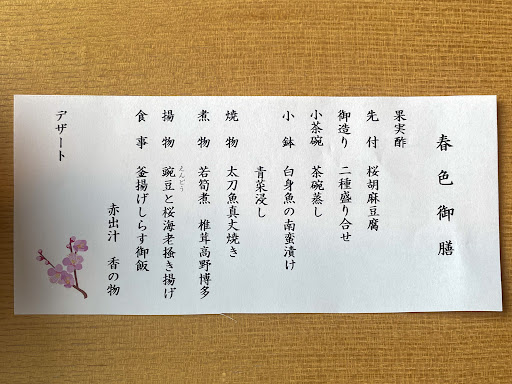 春色御膳
果実酢
先付 桜胡麻豆腐
御造り 二種盛り合せ
小茶碗 茶碗蒸し
小鉢 白身魚の南蛮漬け
青菜浸し
焼物 太刀魚真丈焼き
煮物 若筍煮 椎茸高野博多
揚物 豌豆と桜海老掻き揚げ
えんどう
食事 釜揚げしらす御飯
赤出汁 香の物
デザート